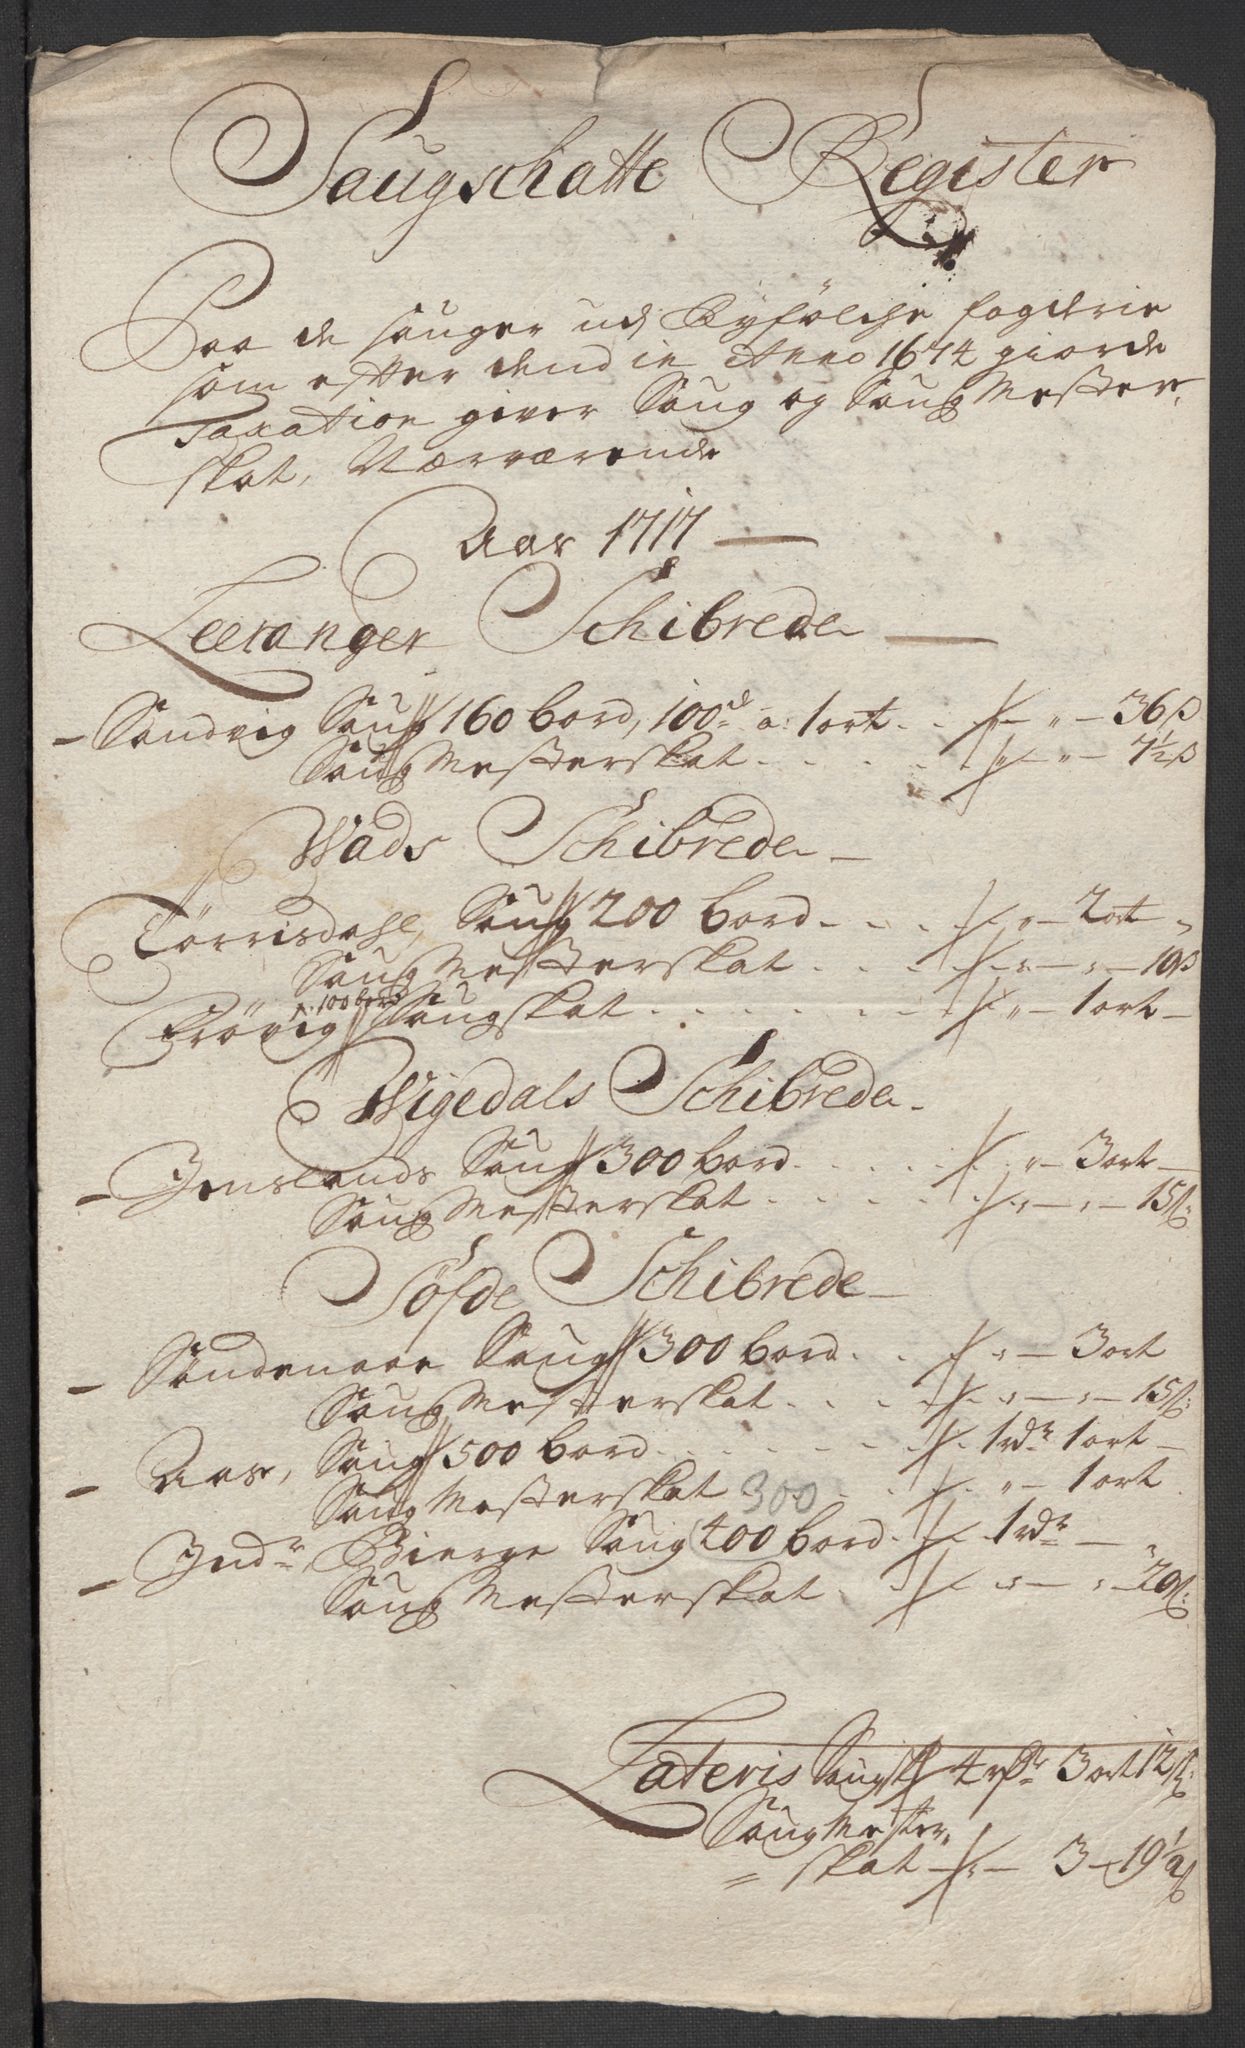 Saugschatte Register
Paa de Sauger udj Ryfölche fogderie
som efter dend in Anno 1674 giorde
Taxation giver Saug og Saug Mester
skat, Nærværende
Aar 1717
Leeranger Schibrede
Sandvig Saug 160 bord, 100d a: 1 ort . . „ — 36 ß
Saug Mesterskat . . . . „ — 7½ ß
Wads Schibrede
Törrisdahl, Saug 200 bord . . . . „ — 2 ort „
Saug Mesterskat . . . . „ — „ — 10 ß
Frövig af 100 bord Saugskat . . . . . „ — 1 ort —
Wigedals Schibrede
Imslands Saug 300 bord . . . . . „ — 3 ort —
Saug Mesterskat . . . . „ — „ — 15 ß:
Söfde Schibrede
Sandenaae Saug 300 bord . . „ — 3 ort
Saug Mesterskat . . . . „ — „ — 15 ß:
Aar, Saug 500 bord . . . . . . 1 rdr 1 ort —
Saug Mesterskat 300 . . „ — 1 ort
Indr Bierge Saug 400 bord . 1 rdr — „
Saug Mesterskat . . „ — „ 20 ß:
Lateris Saugsk 4 rdr 3 ort 12 ß:
Saug Mester„
skat — 3 — 19½ ß